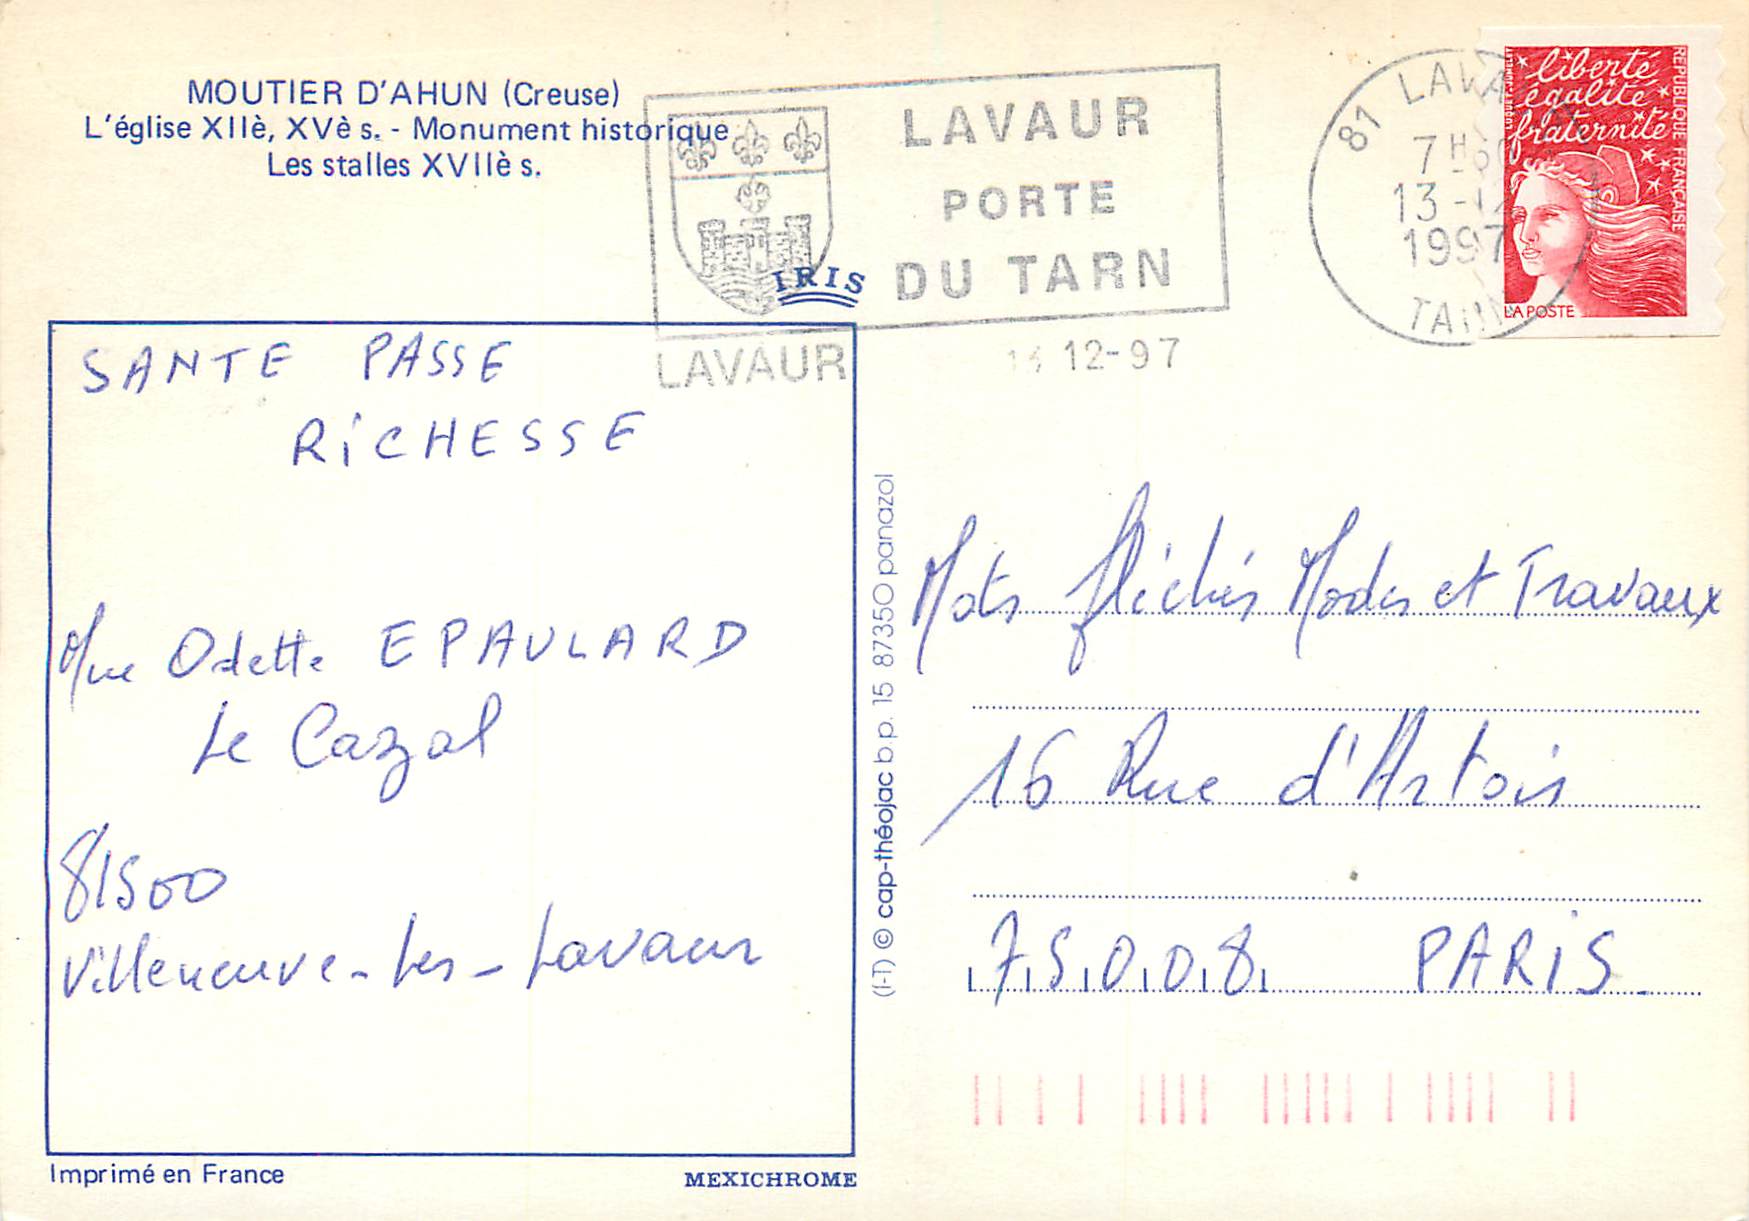 MOUTIER D'AHUN (Creuse)
L'église XIIè, XVè s. - Monument historique
Les stalles XVIIè s.
LAVAUR
PORTE
DU TARN
LAVAUR
12-97
81 LAVA
7H
13-12
1997
TARN
liberté
égalité
fraternité
REPUBLIQUE FRANÇAISE
LA POSTE
IRIS
SANTE PASSE
RiCHESSE
Mme Odette EPAULARD
Le Cazal
81500
Villeneuve-les-Lavaur
(I-T) © cap-théojac b.p. 15 87350 panazol
Mots fléchés Modes et Travaux
16 Rue d'Artois
75008 PARIS
Imprimé en France
MEXICHROME